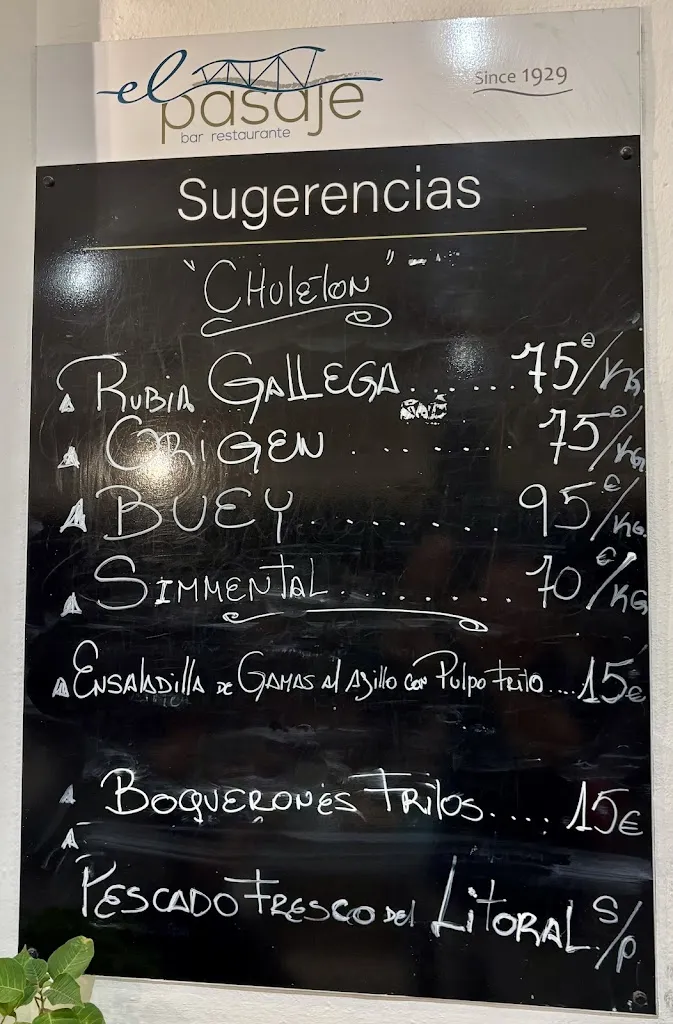 el pasaje
bar restaurante
Since 1929
Sugerencias
"CHULETON"
RUBIA GALLEGA....... 75€/KG.
ORIGEN ........ 75€/KG
BUEY.......... 95€/KG.
SIMMENTAL......... 70€/KG
ENSALADILLA DE GAMAS Al AJillo con Pulpo Frito....15€
BOQUERONES FRITOS..... 15€
PESCADO FRESCO DEL LITORAL S/P